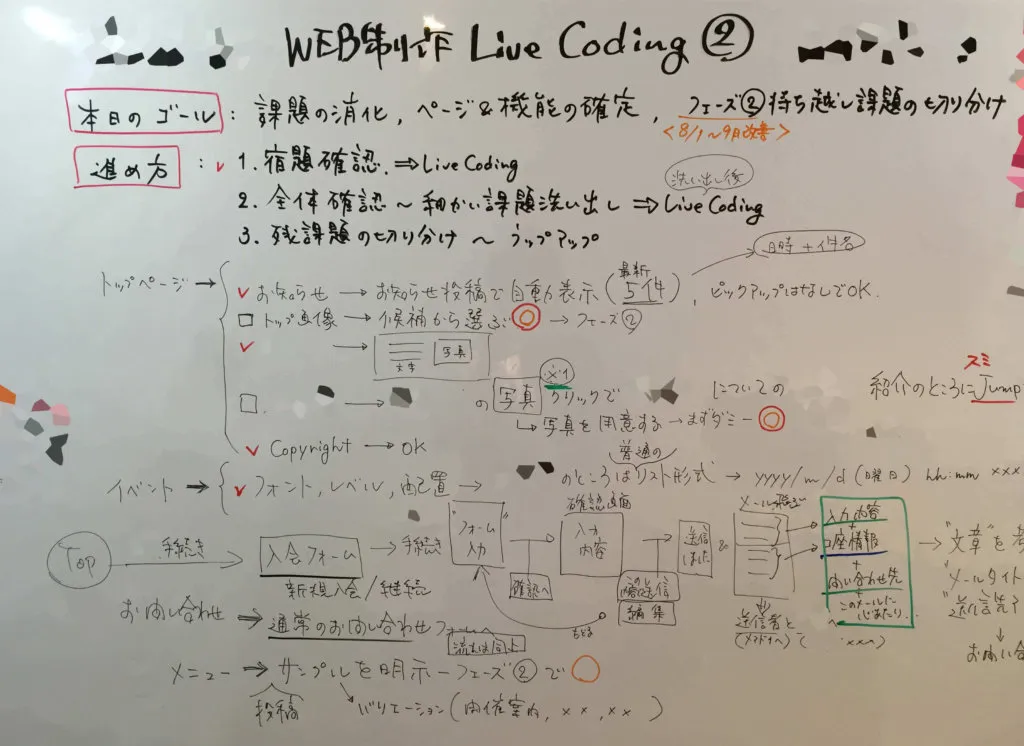 WEB制作 Live Coding ②
本日のゴール : 課題の消化, ページ&機能の確定, フェーズ②持ち越し課題の切り分け
<8/1〜9月改善>
進め方 : ✓ 1. 宿題確認. ⇒ Live Coding
洗い出し後
2. 全体確認 〜 細かい課題洗い出し ⇒ Live Coding
3. 残課題の切り分け 〜 ラップアップ
日時+件名
トップページ → ✓ お知らせ → お知らせ投稿で自動表示 (最新5件), ピックアップはなしでOK.
□ トップ画像 → 候補から選ぶ ◎ → フェーズ②
✓ → 文字 写真
※1
スミ
□. → の 写真 クリックで についての
紹介のところにJump
↳ 写真を用意する → まずダミー ◎
✓ Copyright → OK
普通の
イベント → ✓ フォント, レベル, 配置 → のところはリスト形式 → yyyy/m/d (曜日) hh:mm xxx
Top 手続き → 入会フォーム → 手続き
新規入会/継続
"フォーム"入力
確認へ
確認画面
入力内容
この内容で送信
編集
もどる
送信しました
&
メール飛ぶ
送信者と
入力内容
+
口座情報
+
問い合わせ先
+
このメールに心あたり..
へ
→ "文章"を
"メールタイト
"送信先
↓
お問い合
お問い合わせ → 通常のお問い合わせフォームへ
流れは同じ
メニュー → サンプルを明示 – フェーズ②で ○
投稿
バリエーション (開催案内, ××, ××)